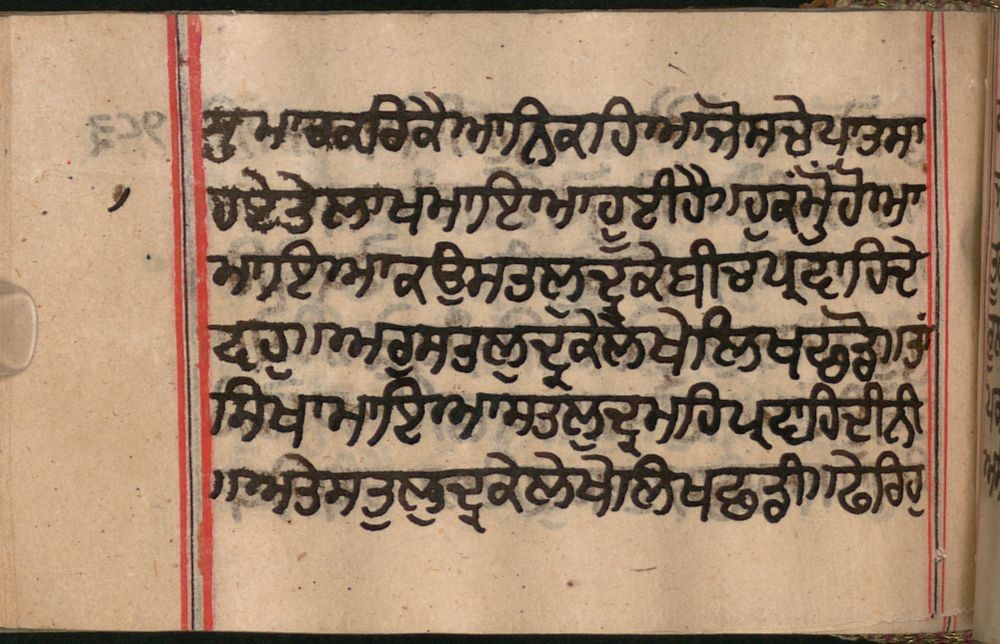 ਸੁਮਾਰਕਰਿਕੈਆਨਿਕਹਿਆਜੋਸਚੇਪਾਤਸਾ
ਹਏਤੇਲਾਖਮਾਇਆਹੂਈਹੈ॥ਹੁਕੰਮੁਹੋਆ
ਮਾਇਆਕਉਸਤਲੁਦ੍ਰਕੇਬੀਚਪ੍ਰਵਾਹਿਦੇ
ਵਹੁ॥ਅਰੁਸਤਲੁਦ੍ਰਕੇਲੈਖੇਲਿਖਛਡੋ॥ਤਾਂ
ਸਿਖਾਮਾਇਆਸਤਲੁਦ੍ਰਮਹਿਪ੍ਰਵਾਹਿਦੀਨੀ
॥ਅਤੇਸਤੁਲੁਦ੍ਰਕੇਲੇਖੇਲਿਖਛਡੀ॥ਫੇਰਿਹੁ